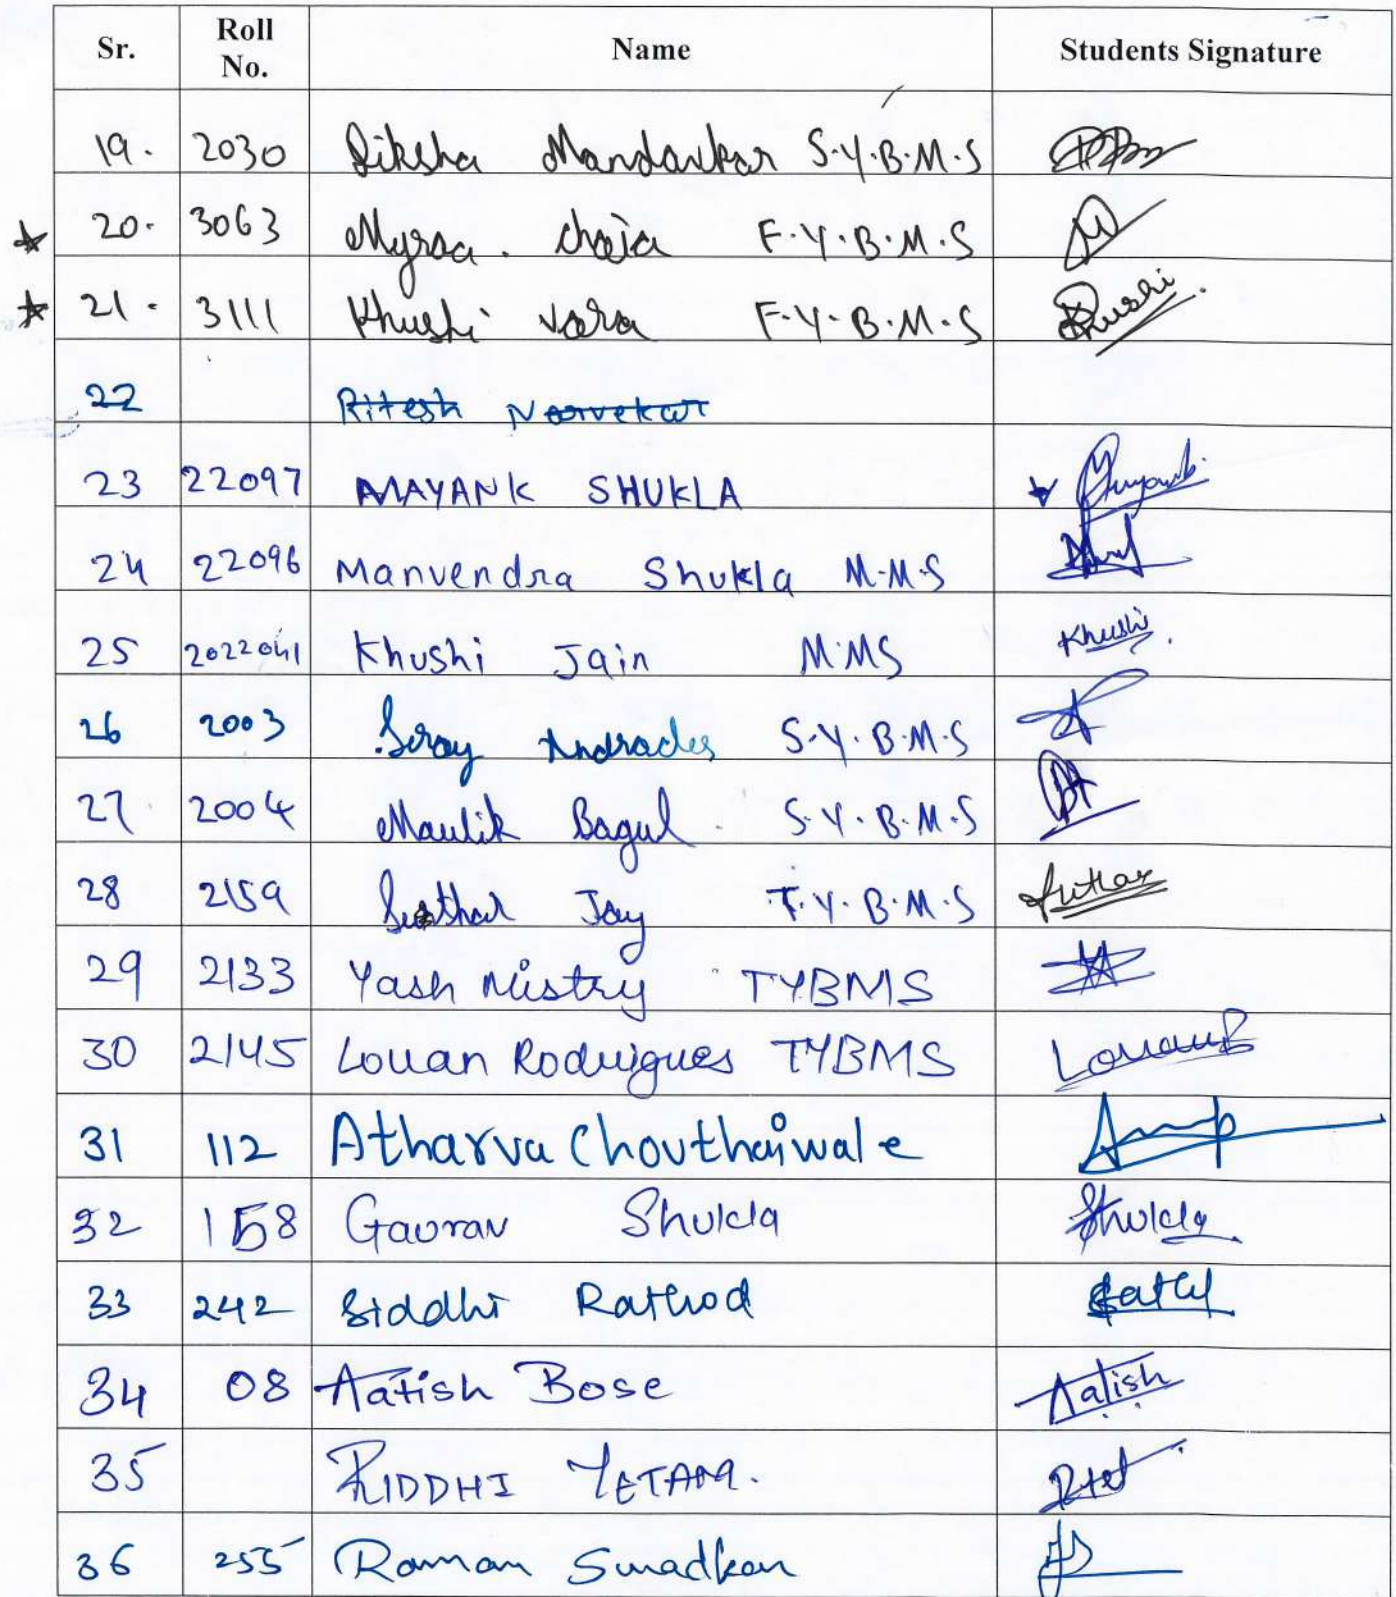 Sr. Roll No. Name Students Signature
19. 2030 Diksha Mandavkar S.Y.B.M.S
20. 3063 Myraa. F.Y.B.M.S
21. 3111 Khushi Vora F.Y.B.M.S Khushi
22 Ritesh Narvekar
23 22097 MAYANK SHUKLA Mayank
24 22096 Manvendra Shukla M.M.S
25 2022041 Khushi Jain M.MS Khushi
26 2003 Andrades S.Y.B.M.S
27 2004 Maulik Bagul S.Y.B.M.S
28 2159 Suthar Jay T.Y.B.M.S Suthar
29 2133 Yash Mistry TYBMS
30 2145 Louan Rodrigues TYBMS Louan
31 112 Atharva Chouthaiwale
32 158 Gaurav Shukla Shukla
33 242 Siddhi Rathod
34 08 Aatish Bose Aatish
35 RIDDHI YETAM.
36 255 Raman